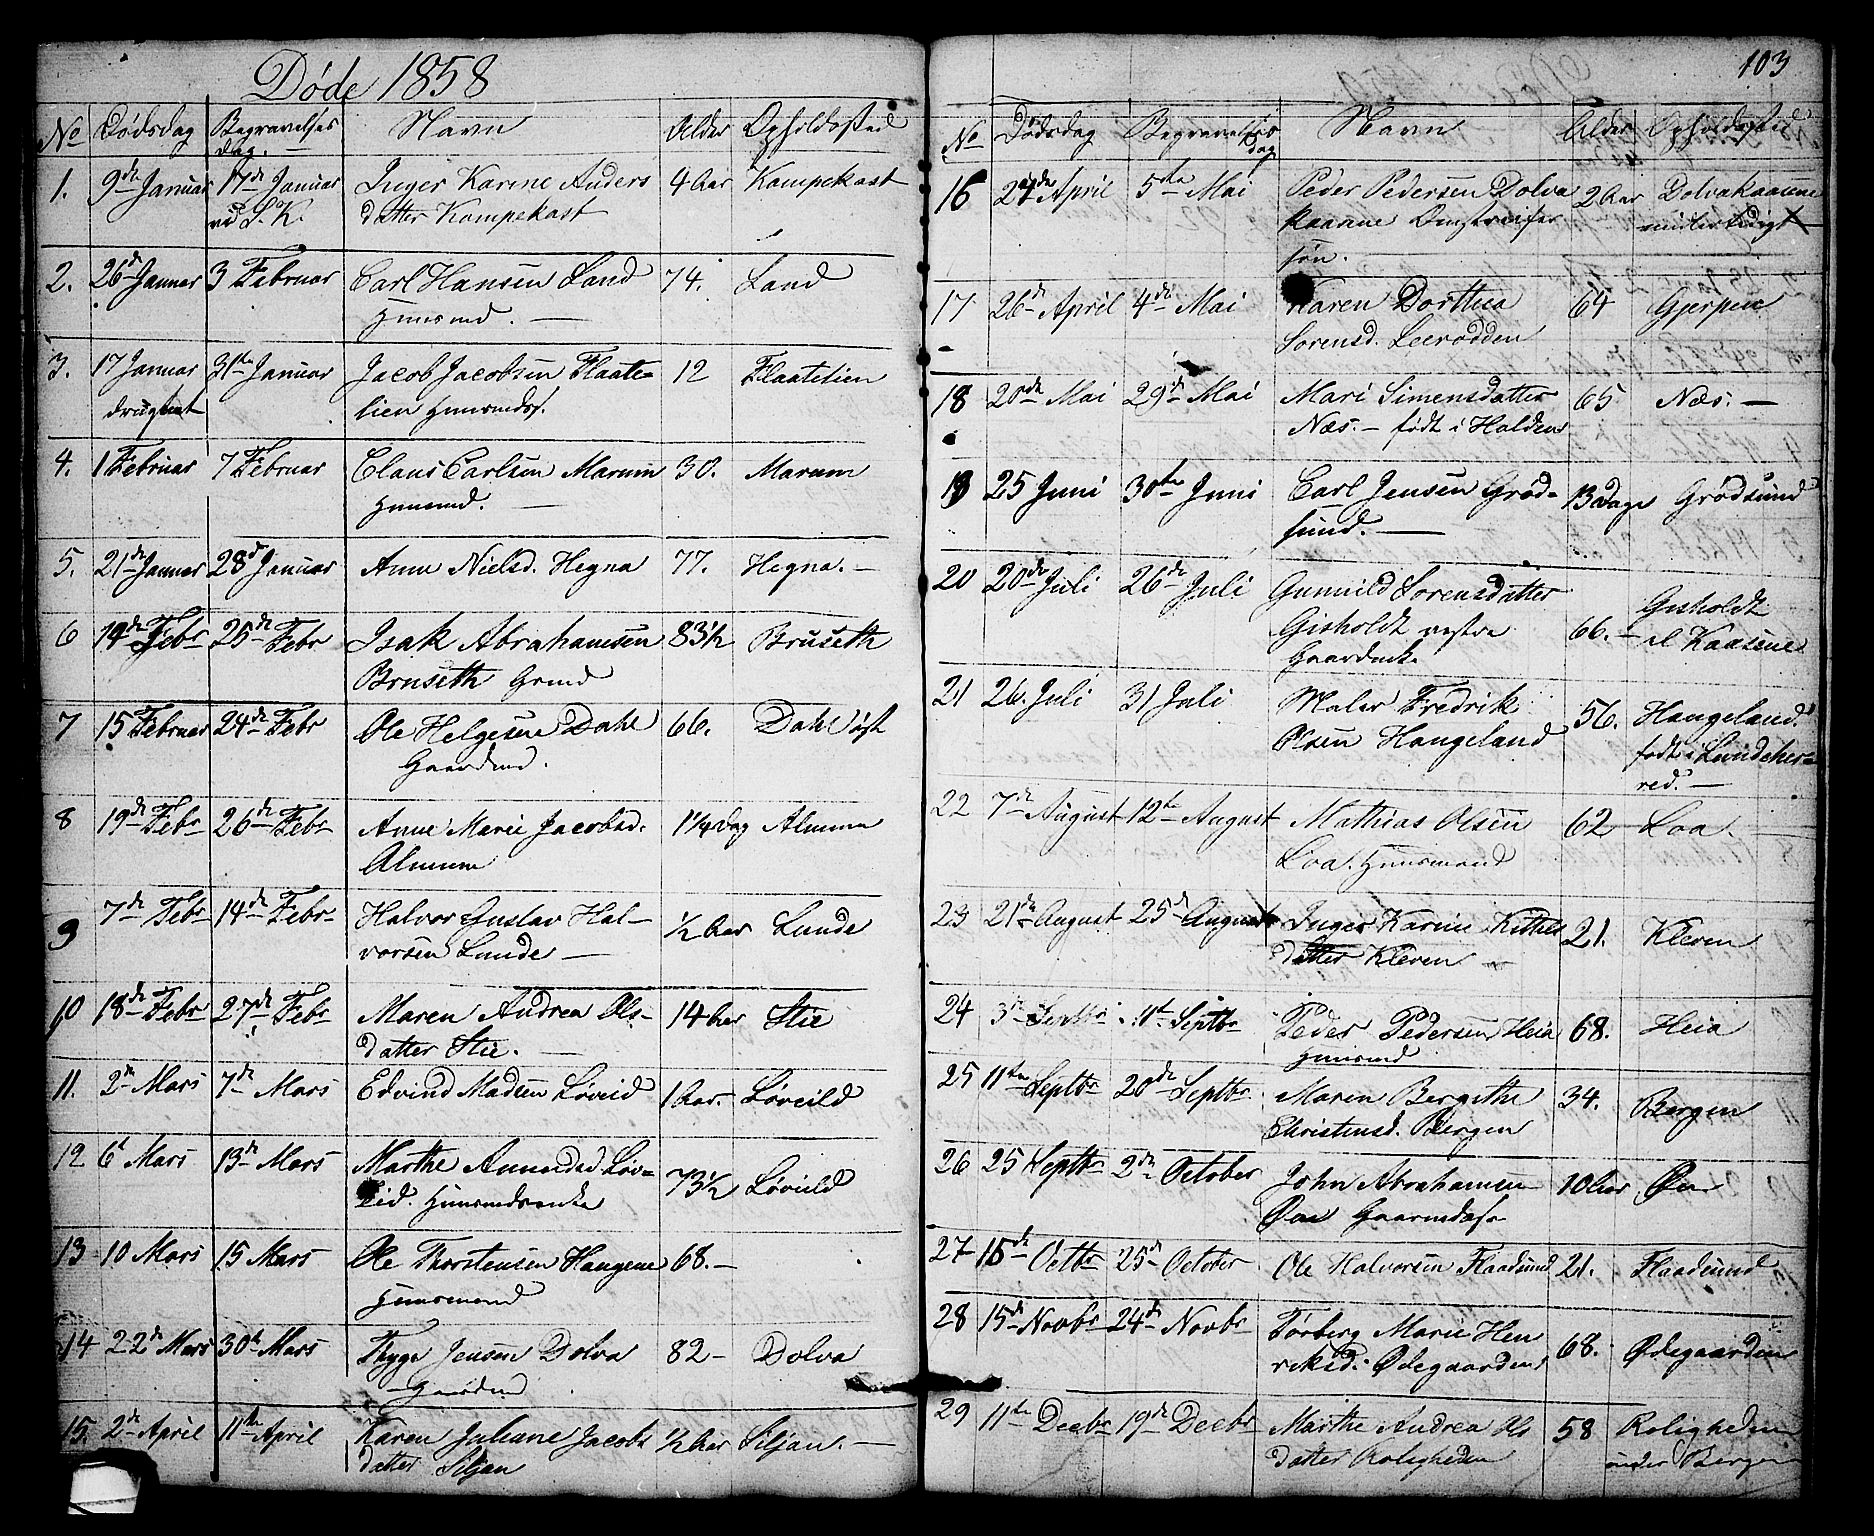 Døde 1858
No Dødsdag Begravelses dag. Navn Alder Opholdssted
1. 9de Januar 17de Januar Inger Karine Anders 4 Aar Kampekast
ved S. K. datter Kampekast
2. 26de Januar 3 Februar Carl Hansen Land 74. Land
Huusmd. —
3. 17 Januar 31te Januar Jacob Jacobsen Flaate- 12 Flaatelien
druknet lien Huusmdss.
4. 1 Februar 7 Februar Claus Carlsen Marum 30. Marum
Huusmd. —
5. 21de Januar 28de Januar Anne Nielsd. Hegna 77. Hegna. —
6 14de Febr 25de Febr Isak Abrahamsen 83½ Bruseth
Bruseth Grmd
7 15 Februar 24de Febr Ole Helgesen Dahl 66. Dahl øst
Gaardmd.
8 19de Febr 26de Febr Anne Marie Jacobsd. 1¼ Dag Almum
Almum
9 7de Febr 14de Febr Halvor Gustav Hal- ½ Aar Lunde
vorsen Lunde —
10 18de Febr 27de Febr Maren Andrea Ols- 14 Aar Stie
datter Stie. —
11. 2de Mars 7de Mars Edvind Madsen Løveid 1 Aar. Løveild
12 6t Mars 13de Mars Marthe Amundsd. Løv- 73½ Løveild
eid. Huusmdsenke
13 10 Mars 15 Mars Ole Thorstensen Haugene 68. —
Huusmand
14 22de Mars 30te Mars Thyge Jensen Dolva 82 — Dolva
— Gaardmd
15. 2de April 11te April Karen Juliane Jacobs ½ Aar Siljan. —
datter Siljan
103
No Dødsdag Begravelses dag Navn Alder Opholdssted
16 24de April 5te Mai Peder Pedersen Dolva 2 Aar Dolvakaaene
kaaane Omstreifer
søn.
17 26de April 4de Mai Karen Dorthea 64 Gjerpen
Sorensd. Leerodden
18 20de Mai 29de Mai Mari Simensdatter 65 Næs. —
Næs. — født i Holden
19 25 Juni 30te Juni Carl Jensen Grød- 13 Dage Grødsund
sund. —
20 20de Juli 26de Juli Gunnild Sorensdatter
Gisholdt vestre 66. — Gisholdt
Gaardenke el Kaasene
21 26. Juli 31 Juli Maler Fredrik 56. Haugeland.
Olsen Haugeland født i Lundeher-
red. —
22 7de August 12te August Mathias Olsen 62 Loa.
Loa. Huusmand
23 21de August 25de August Inger Karine Kittels 21. Kleven
datter Kleven —
24 3de Septbr 11te Septbr Peder Pedersen Heia 68. Heia
Huusmd
25 11te Septbr 20de Septbr Maren Bergithe 34. Bergen
Christensd. Bergen
26 25 Septbr 2de October John Abrahamsen 10 Aar Øen
Øen Gaarmdss
27 15de Octbr 25de October Ole Halvorsen Flaadsund 21. Flaadsund
28 15de Novbr 24de Novbr Torberg Marie Hen 68. Ødegaarden
riksd. Ødegaarden
29 11te Decbr 19de Decbr Marthe Andrea Ols 58 Roligheden
datter Roligheden under Bergen